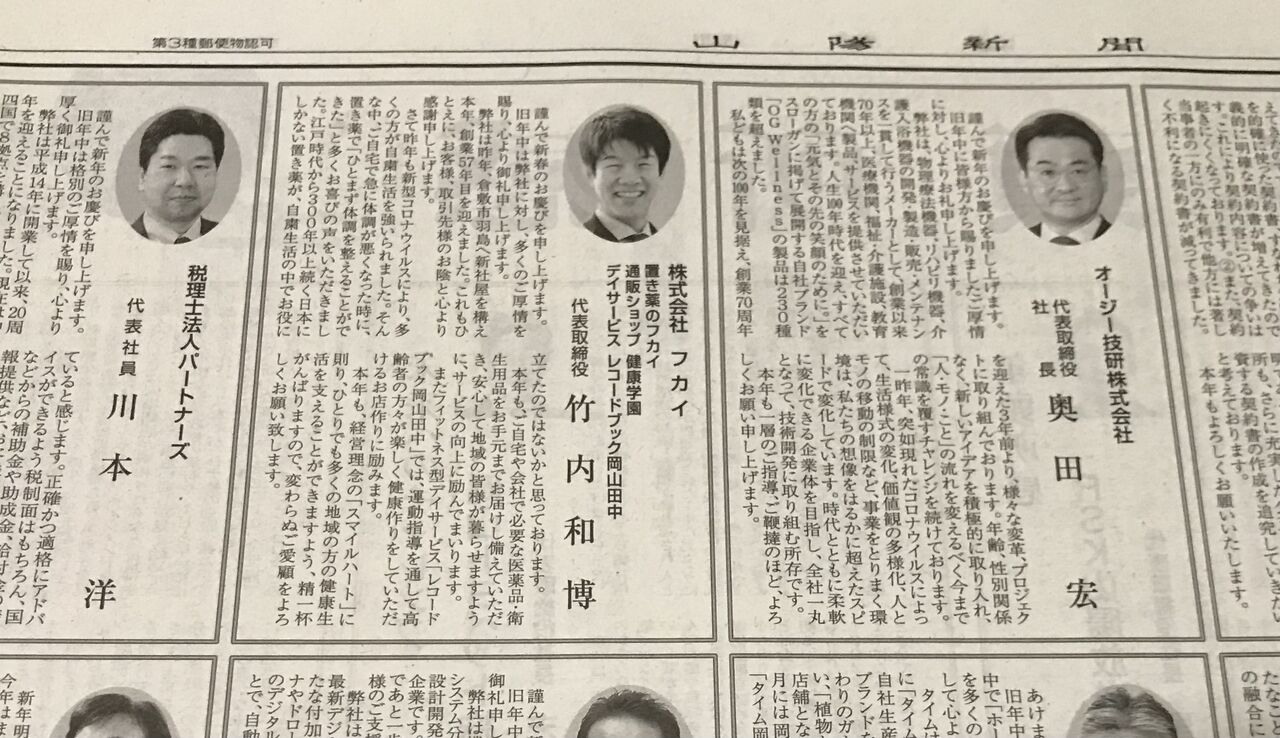 第3種郵便物認可
山陽新聞
オージー技研株式会社
代表取締役
社長
奥田宏
謹んで新年のお慶びを申し上げます。
旧年中に皆様方から賜りましたご厚情
に対し、心よりお礼申し上げます。
弊社は、物理療法機器、リハビリ機器、介
護入浴機器の開発・製造・販売・メンテナン
スを一貫して行うメーカーとして、創業以来
70年以上、医療機関、福祉・介護施設、教育
機関へ製品、サービスを提供させていただい
ております。人生100年時代を迎え、「すべて
の方の「元気とその先の笑顔のために。」を
スローガンに掲げて展開する自社ブランド
「OG Wellness」の製品は230種
類を超えました。
私どもは次の100年を見据え、創業70周年
を迎えた3年前より、様々な変革・プロジェク
トに取り組んでおります。年齢、性別関係
なく、新しいアイデアを積極的に取り入れ、
「人・モノ・こと」の流れを変えるべく今まで
の常識を覆すチャレンジを続けております。
一昨年、突如現れたコロナウイルスによっ
て、生活様式の変化、価値観の多様化、人と
モノの移動の制限など、事業をとりまく環
境は、私たちの想像をはるかに超えたスピ
ードで変化しています。時代とともに柔軟
に変化できる企業体を目指し、全社一丸
となって、技術開発に取り組む所存です。
本年も一層のご指導、ご鞭撻のほど、よろ
しくお願い申し上げます。
株式会社 フカイ
置き薬のフカイ
通販ショップ 健康学園
デイサービス レコードブック岡山田中
代表取締役 竹内和博
謹んで新春のお慶びを申し上げます。
旧年中は弊社に対し、多くのご厚情を
賜り、心より御礼申し上げます。
弊社は昨年、倉敷市羽島へ新社屋を構え
本年、創業57年目を迎えました。これもひ
とえに、お客様、取引先様のお陰と心より
感謝申し上げます。
さて昨年も新型コロナウィルスにより、多
くの方が自粛生活を強いられました。そん
な中、「ご自宅で急に体調が悪くなった時に、
置き薬で「ひとまず体調を整えることがで
きた」と多くお喜びの声をいただきまし
た。江戸時代から300年以上続く日本に
しかない置き薬が、自粛生活の中でお役に
立てたのではないかと思っております。
本年も、ご自宅や会社で必要な医薬品・衛
生用品をお手元までお届けし備えていただ
き、安心して地域の皆様が暮らせますよう
に、サービスの向上に励んでまいります。
またフィットネス型デイサービス「レコード
ブック岡山田中」では、運動指導を通して高
齢者の方々が楽しく健康作りをしていただ
けるお店作りに励みます。
本年も、経営理念の「スマイルハート」に
則り、ひとりでも多くの地域の方の健康生
活を支えることができますよう、精一杯
がんばりますので、変わらぬご愛顧をよろ
しくお願い致します。
税理士法人パートナーズ
代表社員 川本洋
謹んで新年のお慶びを申し上げます。
旧年中は格別のご厚情を賜り、心より
厚く御礼申し上げます。
弊社は平成14年に開業して以来、20周
年を迎えることになりました。現在は
四国で8拠点
ていると感じます。正確かつ適格にアドバ
イスができるよう税制面はもちろん、国
などからの補助金や助成金、給付金
報提供など、お